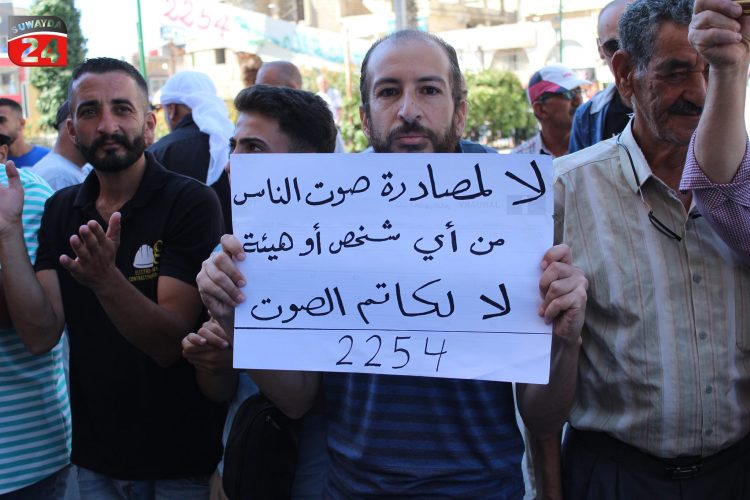 SUWAYDA
24
2254
لا لمصادرة صوت الناس
من أي شخص أو هيئة
لا لكاتم الصوت
2254